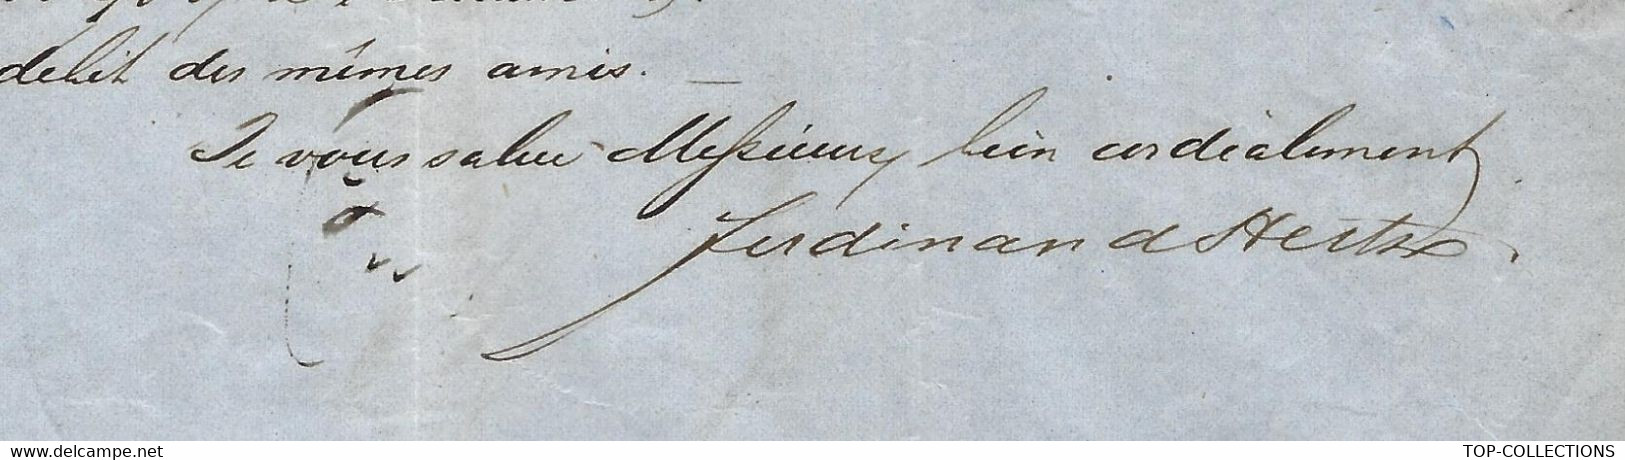 debit des mêmes amis. —
Je vous salue Messieurs bien cordialement
Ferdinand Hertz.
delcampe.net
TOP-COLLECTIONS